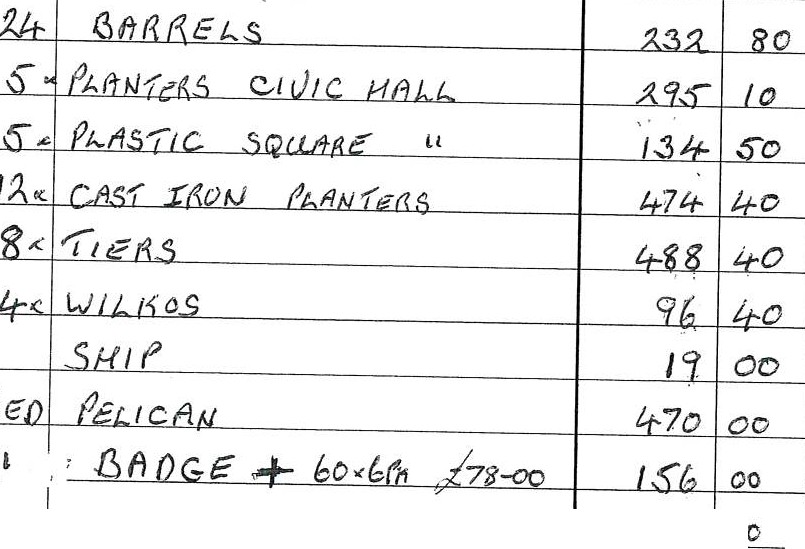 24 BARRELS 232 80
5 x PLANTERS CIVIC HALL 295 10
5 x PLASTIC SQUARE " 134 50
12 x CAST IRON PLANTERS 474 40
8 x TIERS 488 40
4 x WILKOS 96 40
SHIP 19 00
ED PELICAN 470 00
BADGE + 60x6PM £78-00 156 00
0